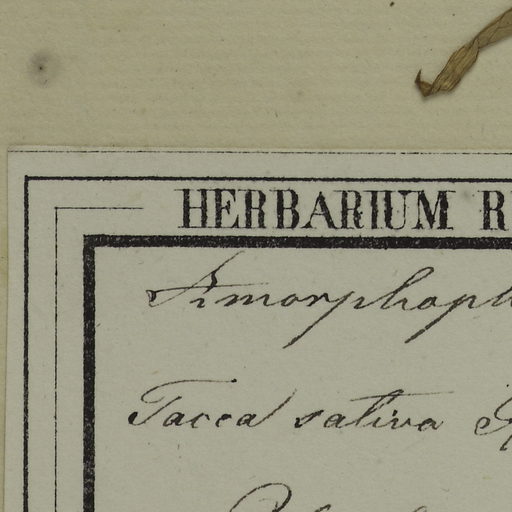 HERBARIUM R
Amorphoph
Tacca sativa